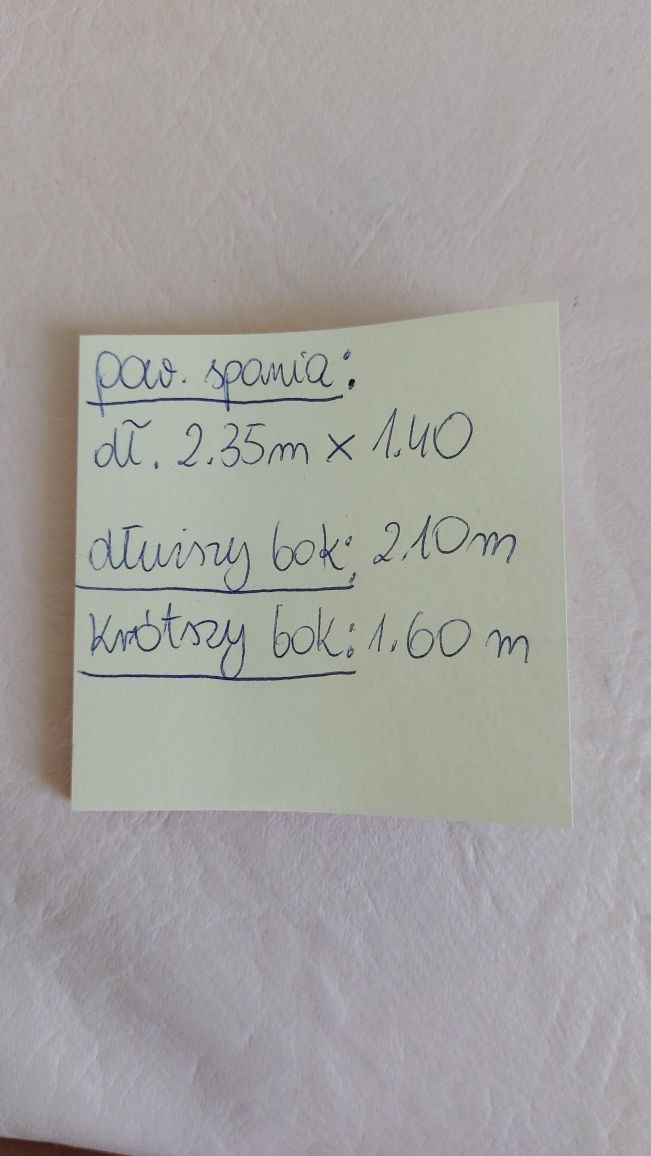 pow. spania:
dł. 2.35m x 1.40
dłuższy bok: 2.10m
krótszy bok: 1.60 m